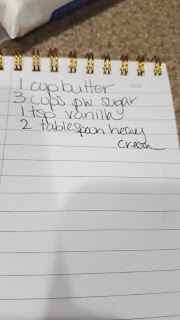 1 cup butter
3 cups pw sugar
1 tsp vanilla
2 tablespoon heavy
cream